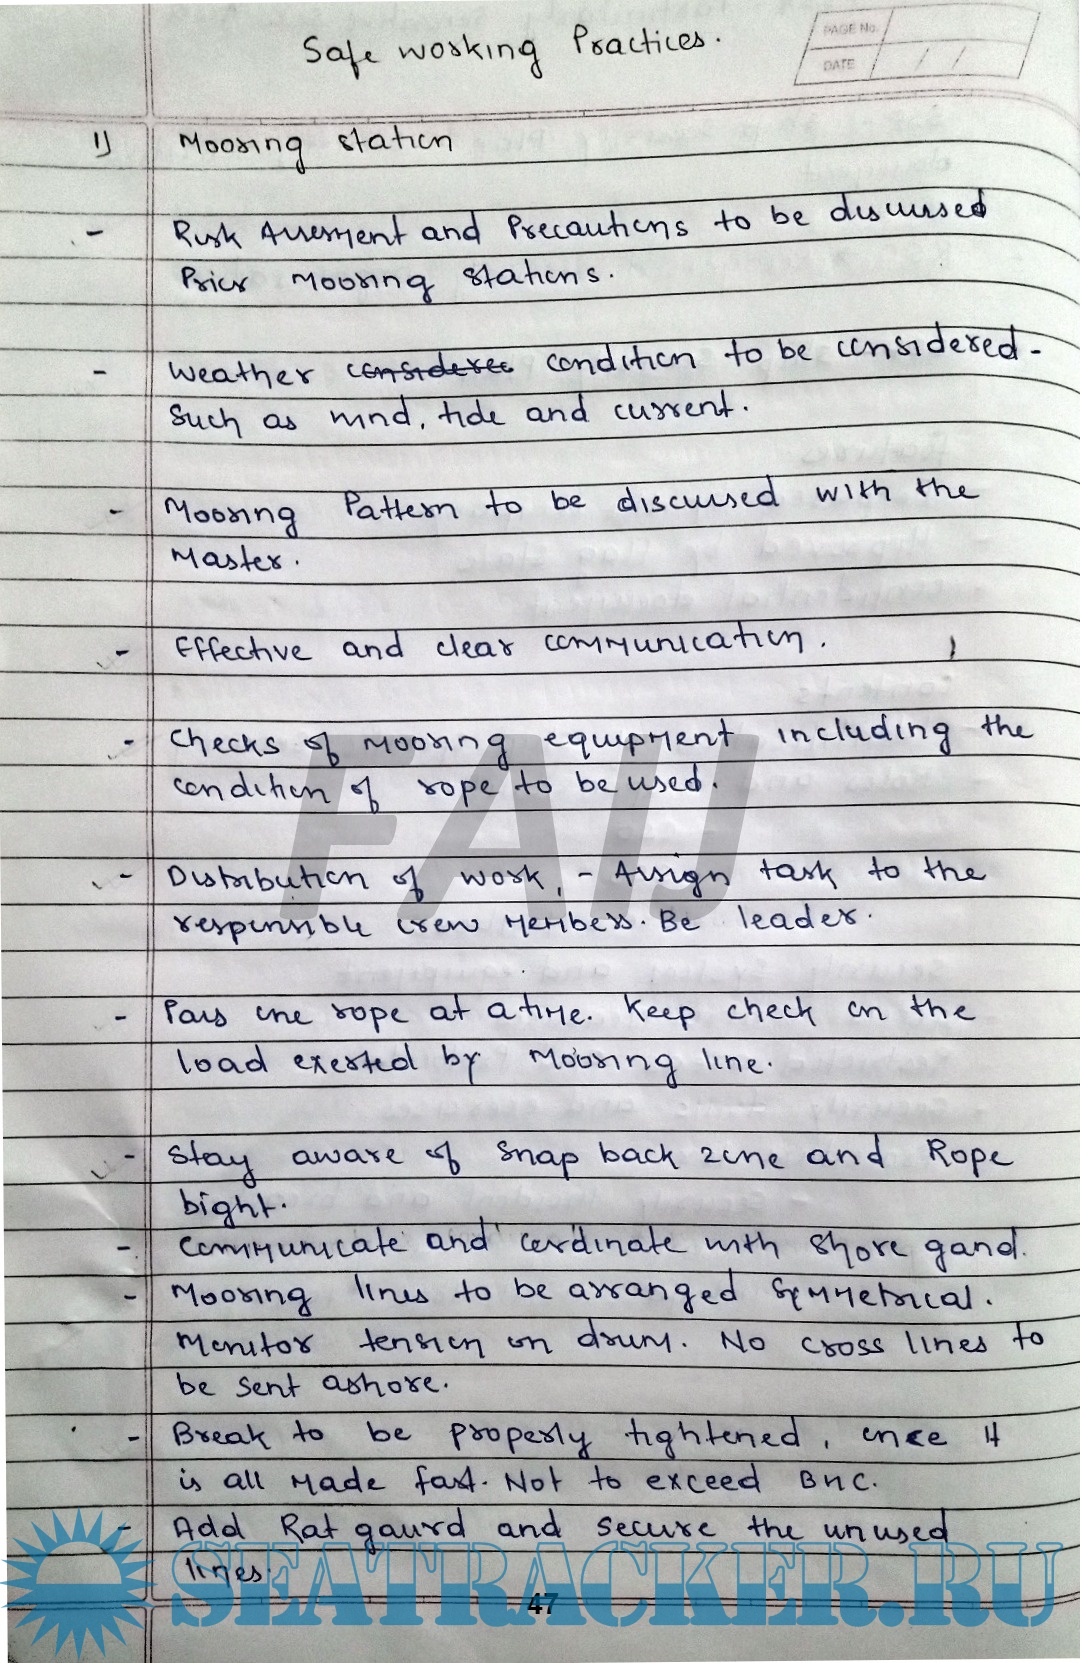 Safe working Practices.
PAGE No.
DATE / /
1) Mooring station
- Risk Assesment and Precautions to be discussed
Prior Mooring stations.
- Weather consideree condition to be considered -
Such as wind, tide and current.
- Mooring Pattern to be discussed with the
Master.
- Effective and clear communication.
- Checks of mooring equipment including the
condition of rope to be used.
- Distribution of work, - Assign task to the
responsible crew members. Be leader.
- Pass one rope at a time. Keep check on the
load exerted by Mooring line.
- Stay aware of Snap back zone and Rope
bight.
- Communicate and cordinate with Shore gand.
- Mooring lines to be arranged Symmetrical.
Monitor tension on drum. No cross lines to
be sent ashore.
- Break to be properly tightened, once it
is all made fast. Not to exceed BHC.
- Add Rat gaurd and secure the unused
lines.
FAIJ
SEATRACKER.RU
47